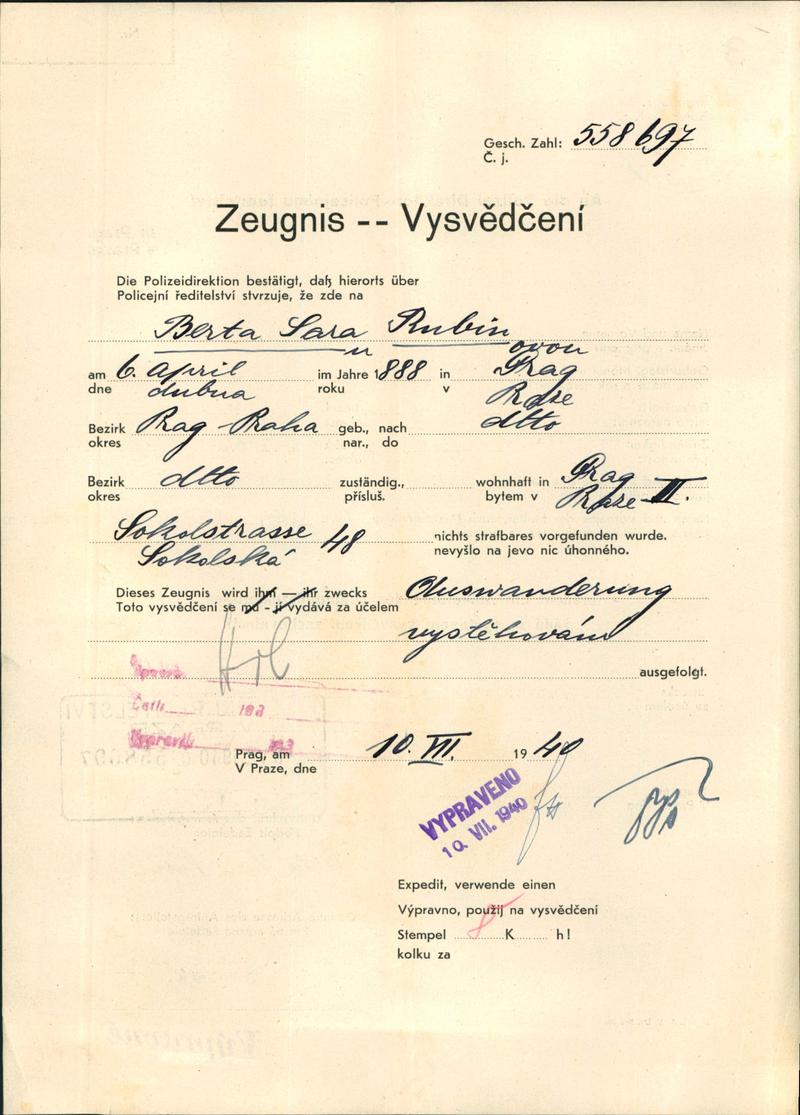 Gesch. Zahl: 558697
Č. j.
Zeugnis -- Vysvědčení
Die Polizeidirektion bestätigt, daß hierorts über
Policejní ředitelství stvrzuje, že zde na
Berta Sara Rubin
u ovou
am 6. April im Jahre 1888 in Prag
dne dubna roku v Praze
Bezirk Prag - Praha geb., nach dtto
okres nar., do
Bezirk dtto zuständig., wohnhaft in Prag
okres přísluš. bytem v Praze - II.
Sokolstrasse 48 nichts strafbares vorgefunden wurde.
Sokolská nevyšlo na jevo nic úhonného.
Dieses Zeugnis wird ihm — ihr zwecks Auswanderung
Toto vysvědčení se mu - jí vydává za účelem
vystěhování
ausgefolgt.
Četli
Vypravili
Prag, am 10. VII. 1940
V Praze, dne
VYPRAVENO
10. VII. 1940
Expedit, verwende einen
Výpravno, použij na vysvědčení
Stempel 8 K h!
kolku za